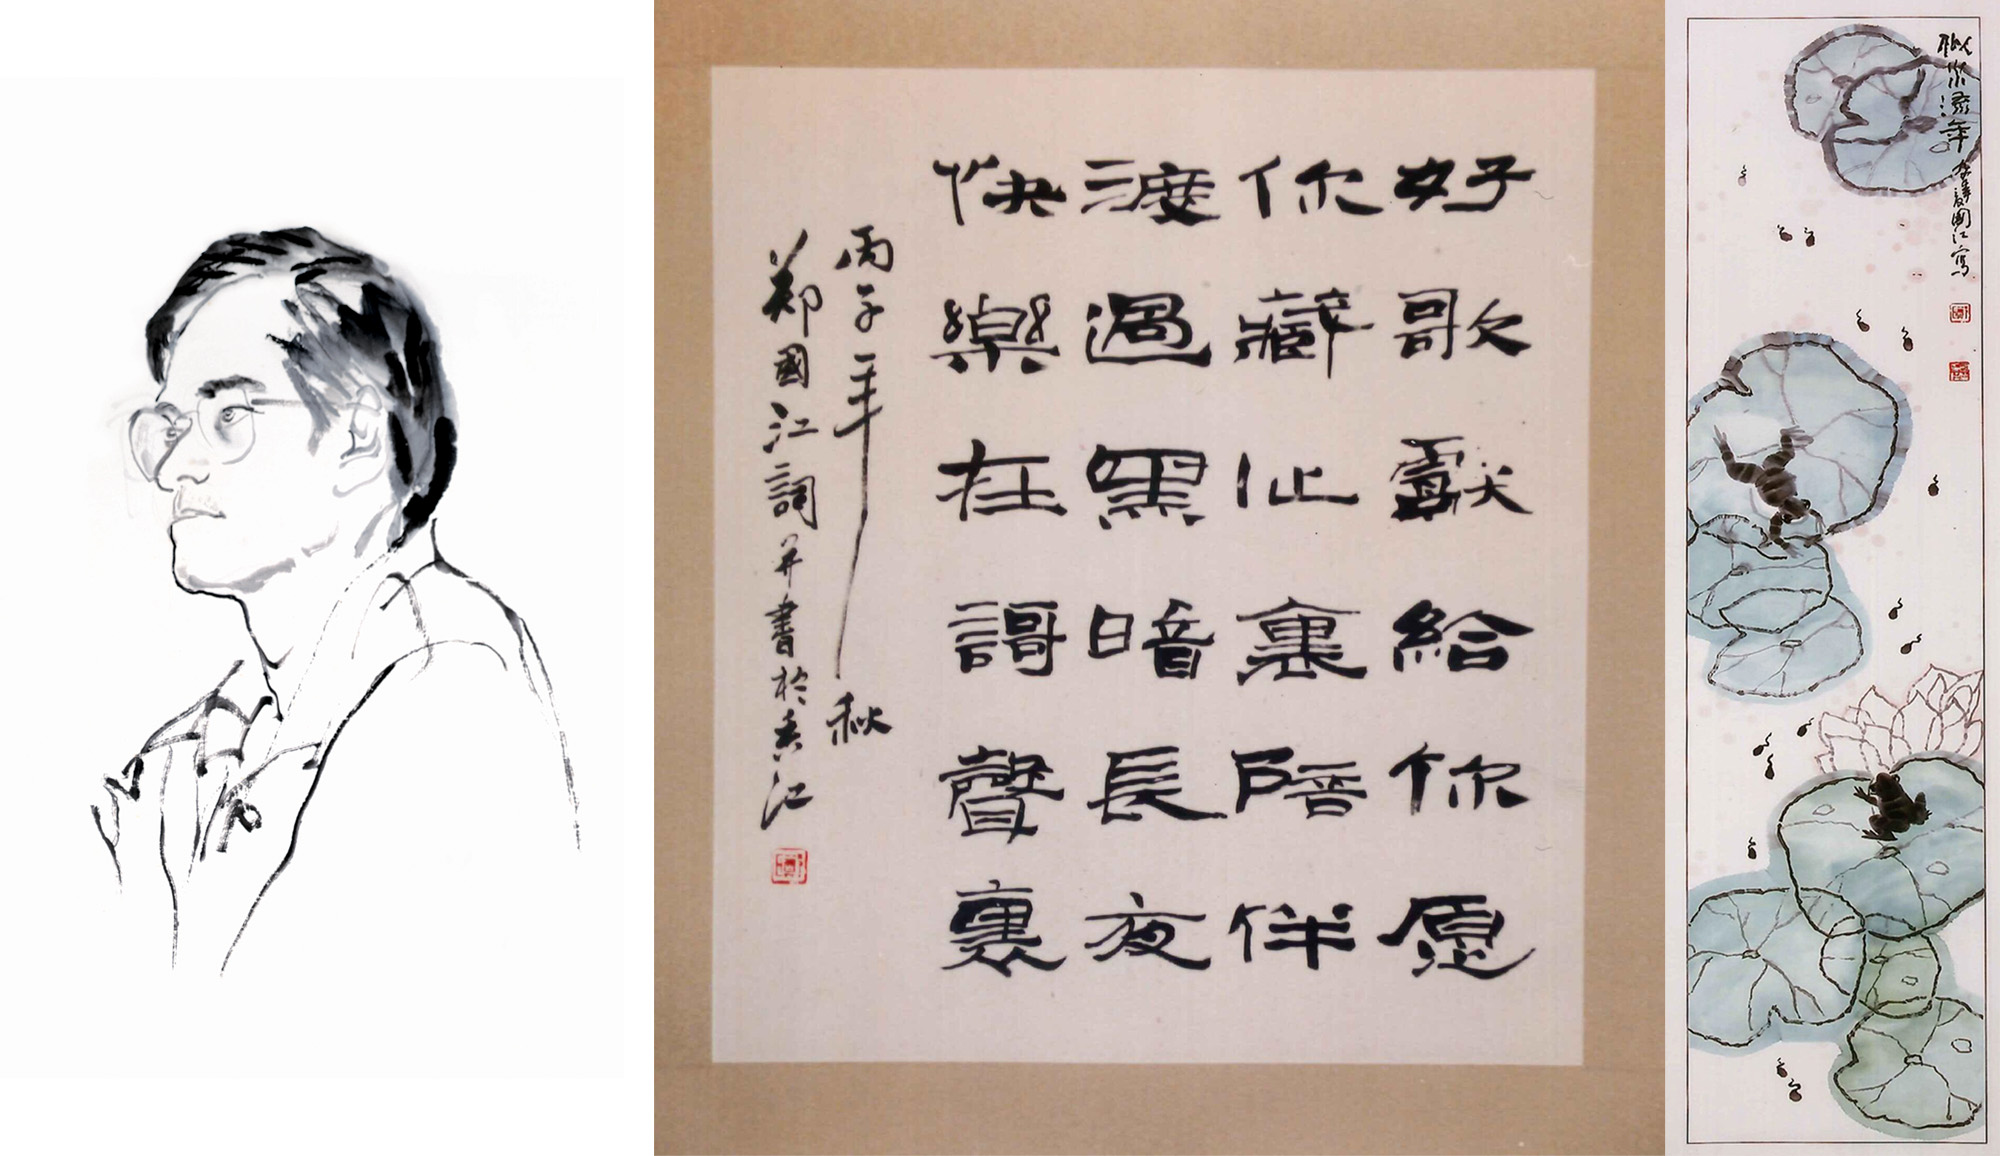 好歌獻給你愿
你藏心裏陪伴
渡過黑暗長夜
快樂在謌聲裏
丙子年秋
鄭國江詞并書於香江
似水流年
國江寫